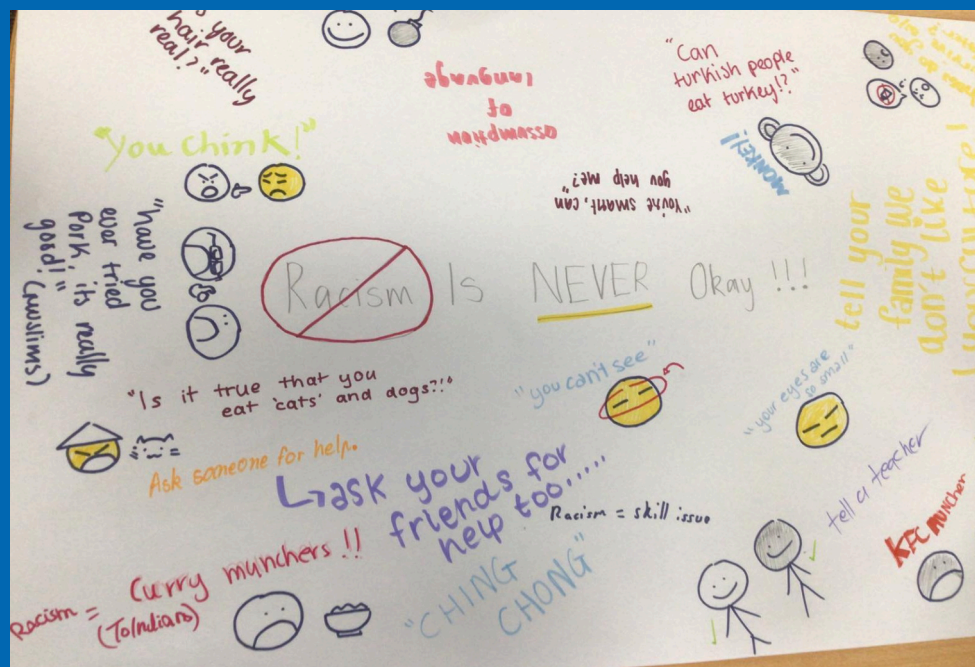 is your
hair really
real?"
assumption
of
language
"Can
turkish people
eat turkey!?"
MONKEY!
"You chink!"
"You're smart, can
you help me?"
"have you
ever tried
Pork, its really
good!"
(Muslims)
Racism Is NEVER Okay !!!
tell your
family we
don't like
"Is it true that you
eat 'cats' and dogs?!"
"you can't see"
"your eyes are
so small"
Ask someone for help.
↳ask your
friends for
help too.....
Racism = skill issue
tell a teacher
KFC MUNCHER
Racism = Curry munchers !!
(To Indians)
"CHING
CHONG"